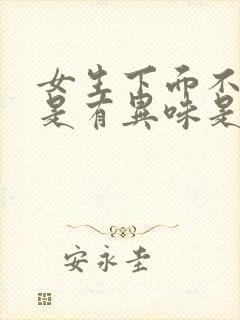 女生下面不
是有異味是
安永圭